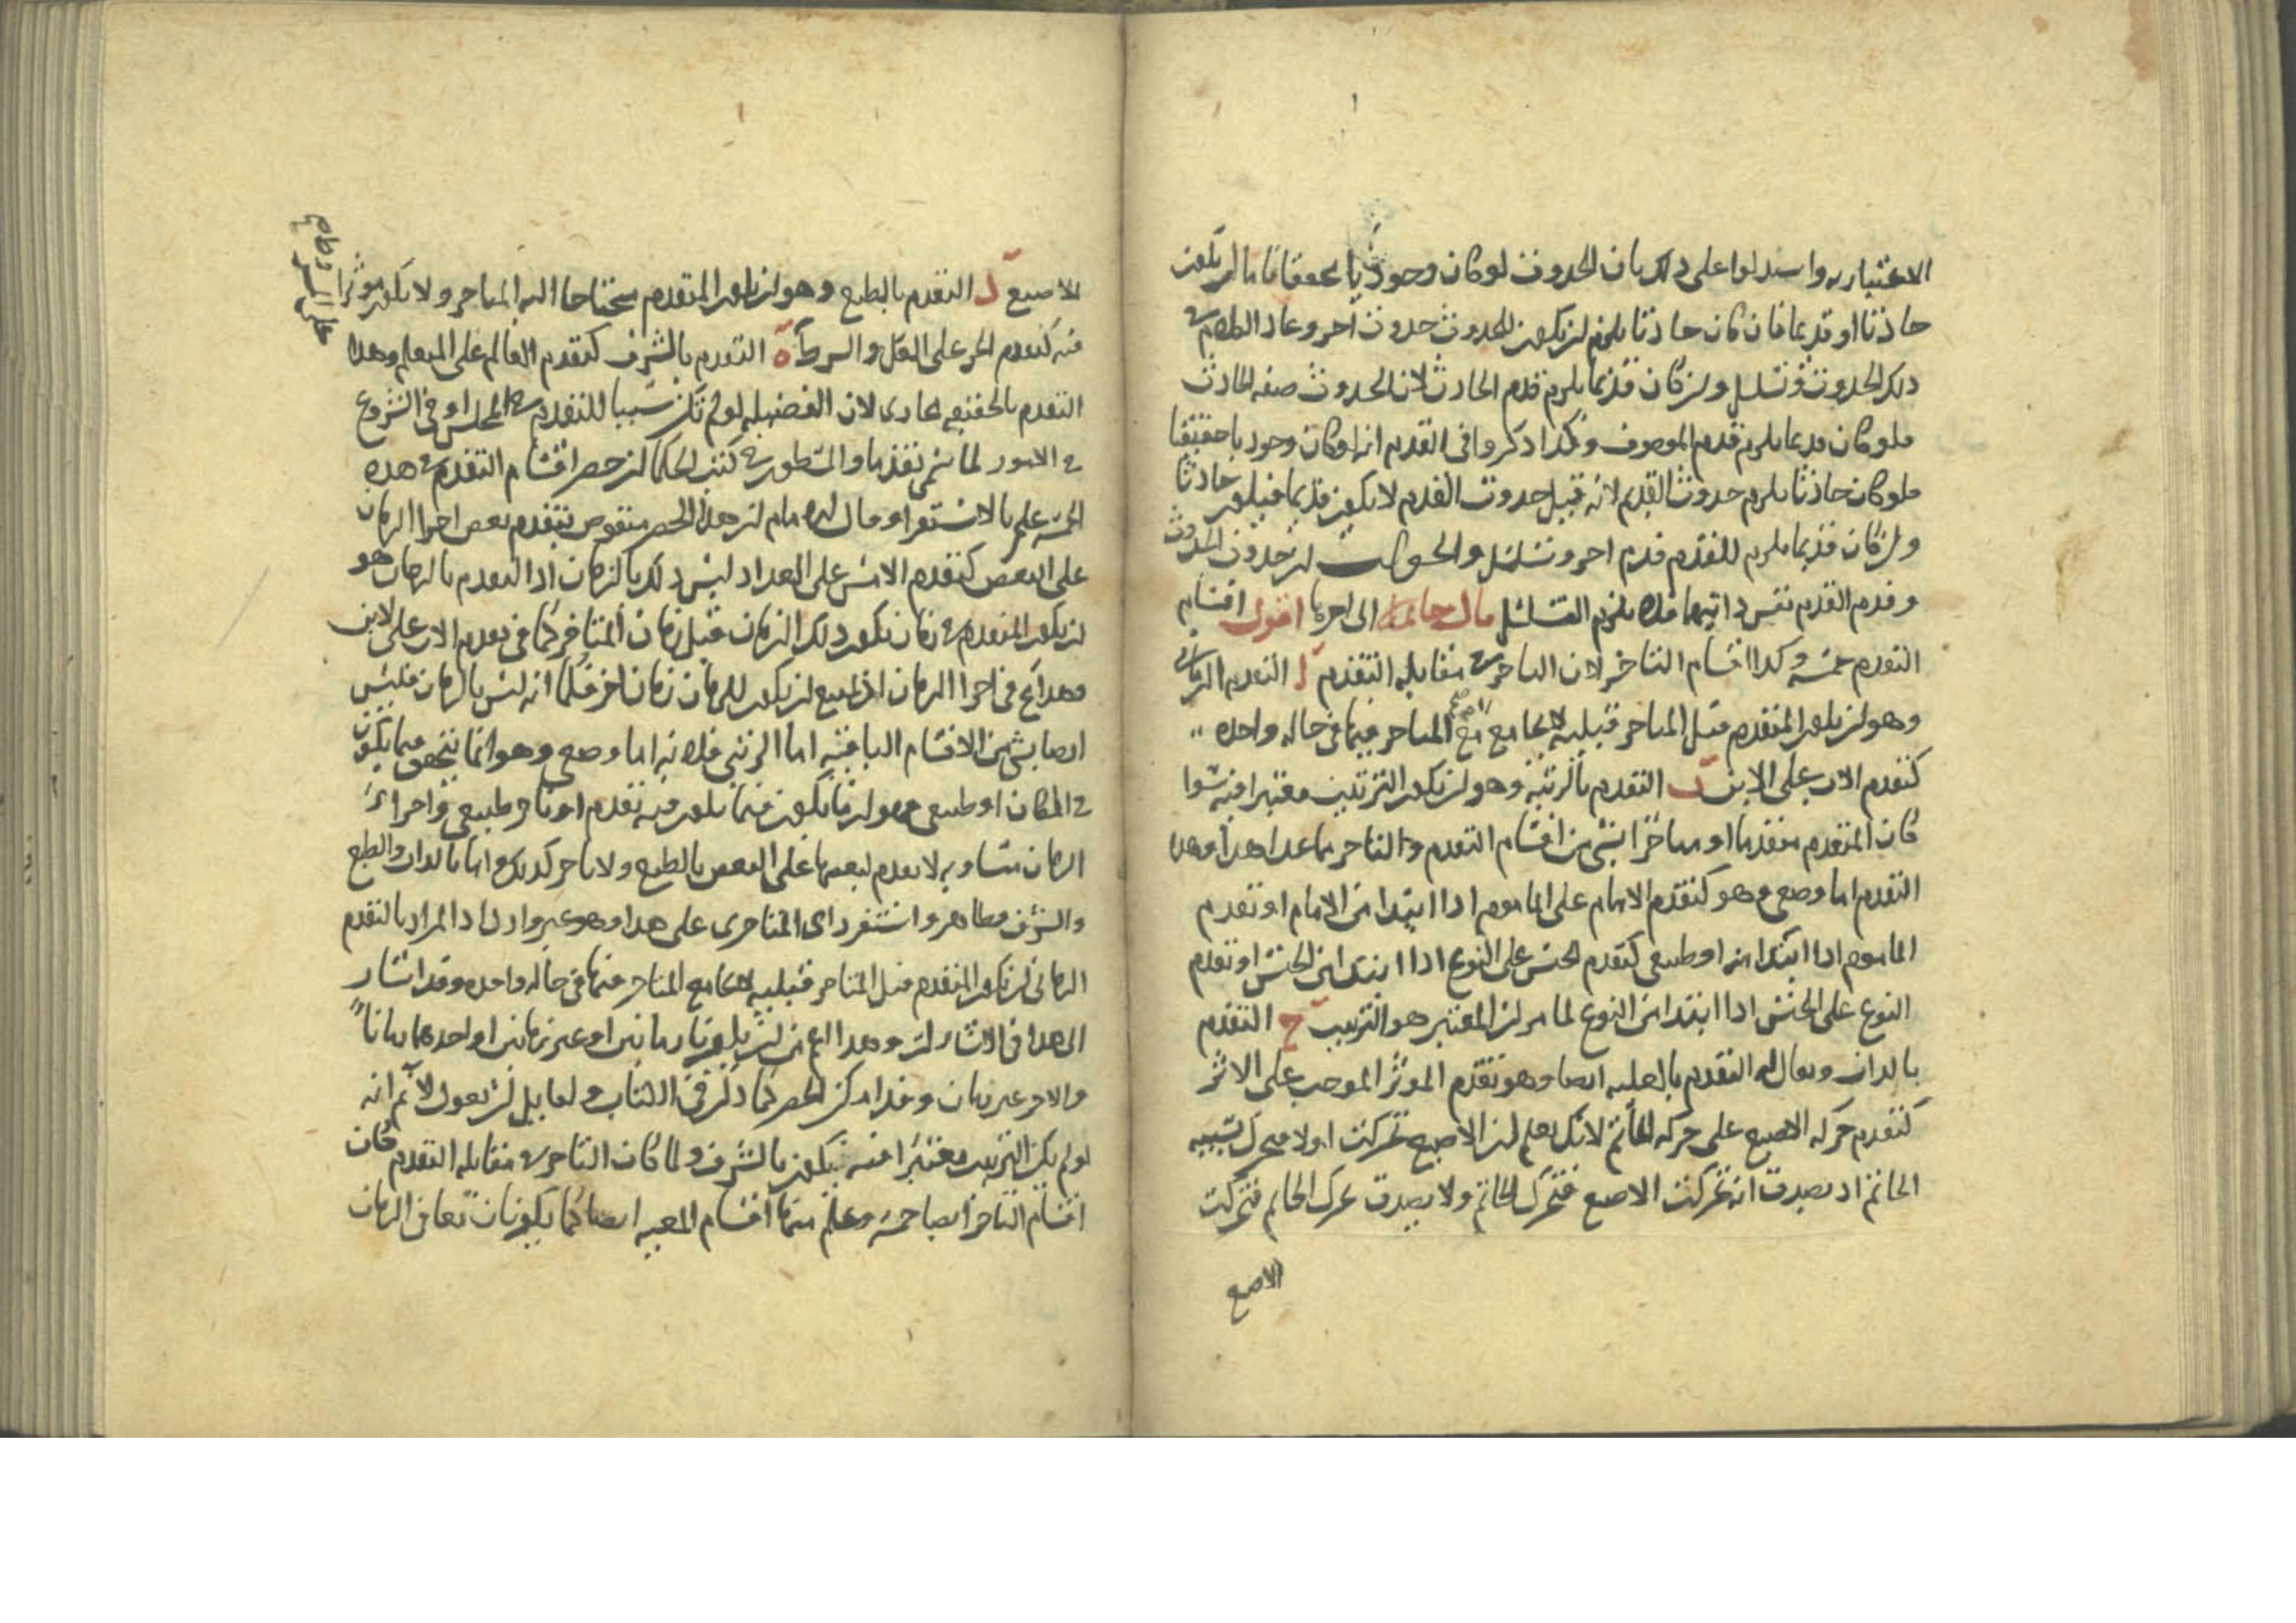 الاعتباريه واستدلوا على ذلك بان الحدوث لو كان وجوديا محققا فاما ان يكون
حادثا او قديما فان كان حادثا يلزم ان يكون للحدوث حدوث آخر وعاد الكلام في
ذلك الحدوث وتسلسل وان كان قديما يلزم قدم الحادث لان الحدوث صفه الحادث
فلو كان قديما يلزم قدم الموصوف وهكذا ذكروا في القدم انه لو كان وجوديا حقيقيا
فلو كان حادثا يلزم حدوث القديم لانه قبل حدوث القدم لا يكون قديما فيكون حادثا
وان كان قديما يلزم للقدم قدم اخر وتسلسل والجواب ان حدوث الحدوث
وقدم القدم نفس ذاتيهما فلا يلزم التسلسل قال خاتمة الى اخرها اقول اقسام
التقدم خمسه وكذا اقسام التاخر لان التاخر في مقابله التقدم ا التقدم الزماني
وهو ان يكون المتقدم قبل المتاخر قبليه لا يجامع مع المتاخر فيها في حاله واحده
كتقدم الاب على الابن ب التقدم بالرتبه وهو ان يكون الترتيب معتبرا فيه سوا
كان المتقدم متقدما او متاخرا بشي من اقسام التقدم والتاخر ما عدا هذا وهذا
التقدم اما وضعي وهو كتقدم الامام على الماموم اذا ابتدا من الامام او تقدم
الماموم اذا ابتدا منه او طبيعي كتقدم الجنس على النوع اذا ابتدا من الجنس او تقدم
النوع على الجنس اذا ابتدا من النوع لما مر ان المعتبر هو الترتيب ج التقدم
بالذات ويقال له التقدم بالعليه ايضا وهو تقدم الموثر الموجب على الاثر
كتقدم حركه الاصبع على حركه الخاتم لانك تعلم ان الاصبع تحركت اولا فتحرك بسببه
الخاتم اذ يصدق انه تحركت الاصبع فتحرك الخاتم ولا يصدق تحرك الخاتم فتحركت
الاصبع
الاصبع د التقدم بالطبع وهو ان يكون المتقدم محتاجا اليه المتاخر ولا يكون موثرا
فيه كتقدم الجز على الكل والشرط ه التقدم بالشرف كتقدم العالم على المتعلم وهذا
التقدم بالحقيقه مجازى لان الفضيله لو لم تكن سببا للتقدم في المجلس او في الشروع
في الامور لما سمي تقدما والمسطور في كتب الحكما ان حصر اقسام التقدم في هذه
الخمسه علم بالاستقرا وقال الامام ان هذا الحصر منقوض بتقدم بعض اجزا الزمان
على البعض كتقدم الامس على الغد اذ ليس ذلك بالزمان اذ التقدم بالزمان هو
ان يكون المتقدم في زمان يكون ذلك الزمان قبل زمان المتاخر كما في تقدم الاب على الابن
وهذا مح في اجزا الزمان اذ يمتنع ان يكون للزمان زمان اخر فكما انه ليس بالزمان فليس
ايضا بشي من الاقسام الباقيه اما الرتبي فلانه اما وضعي وهو انما يتحقق فيما يكون
في المكان او طبيعي وهو انما يكون فيما يكون فيه تقدم او تاخر طبيعي واجزاء
الزمان متساويه لا تقدم لبعضها على البعض بالطبع ولا تاخر كذلك واما بالذات والطبع
والشرف فظاهر واستقر راى المتاخرين على هذا وهو غير وارد اذ المراد بالتقدم
الزماني ان يكون المتقدم قبل المتاخر قبليه لا يجامع المتاخر فيها في حاله واحده وقد اشار
الى هذا في الاشارات وهذا اعم من ان يكونا زمانين او غير زمانين او احدهما زمانا
والاخر غير زمان وقد امكن الحصر كما ذكر في الكتاب ولقايل ان يقول لا نم انه
لو لم يكن الترتيب معتبرا فيه يكون بالشرف ولما كان التاخر في مقابله التقدم كان
اقسام التاخر ايضا خمسه وعلم منها اقسام المعيه ايضا كما يكونان معا في الزمان